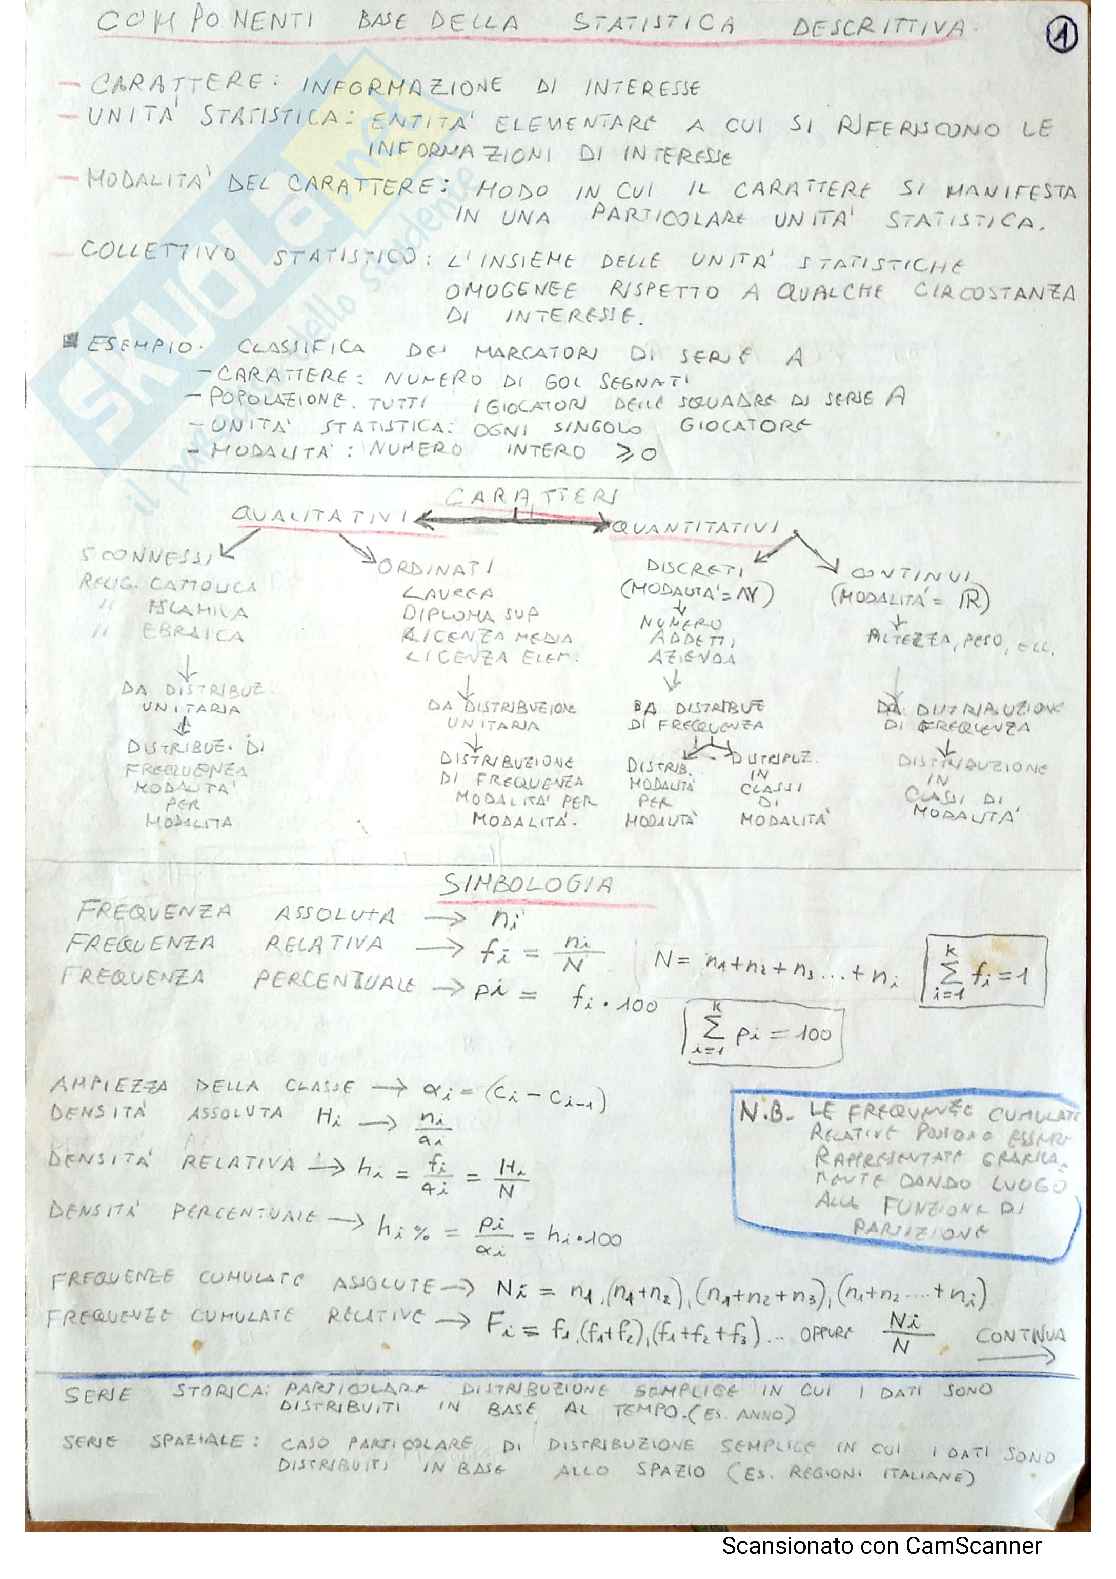 COMPONENTI BASE DELLA STATISTICA DESCRITTIVA.
1
- CARATTERE: INFORMAZIONE DI INTERESSE
- UNITA' STATISTICA: ENTITA' ELEMENTARE A CUI SI RIFERISCONO LE
INFORMAZIONI DI INTERESSE
- MODALITA' DEL CARATTERE: MODO IN CUI IL CARATTERE SI MANIFESTA
IN UNA PARTICOLARE UNITA' STATISTICA.
- COLLETTIVO STATISTICO: L'INSIEME DELLE UNITA' STATISTICHE
OMOGENEE RISPETTO A QUALCHE CIRCOSTANZA
DI INTERESSE.
ESEMPIO. CLASSIFICA DEI MARCATORI DI SERIE A
- CARATTERE: NUMERO DI GOL SEGNATI
- POPOLAZIONE. TUTTI I GIOCATORI DELLE SQUADRE DI SERIE A
- UNITA' STATISTICA: OGNI SINGOLO GIOCATORE
- MODALITA': NUMERO INTERO ⩾0
SKUOLA.net
il paradiso dello studente
CARATTERI
QUALITATIVI QUANTITATIVI
SCONNESSI
RELIG. CATTOLICA
" ISLAMICA
" EBRAICA
DA DISTRIBUZ.
UNITARIA
DISTRIBUZ. DI
FREQUENZA
MODALITA'
PER
MODALITA
ORDINATI
LAUREA
DIPLOMA SUP
LICENZA MEDIA
LICENZA ELEM.
DA DISTRIBUZIONE
UNITARIA
DISTRIBUZIONE
DI FREQUENZA
MODALITA' PER
MODALITA'.
DISCRETI
(MODALITA'=ℕ)
NUMERO
ADDETTI
AZIENDA
DA DISTRIBUZ
DI FREQUENZA
DISTRIB.
MODALITA'
PER
MODALITA'
DISTRIBUZ.
IN
CLASSI
DI
MODALITA'
CONTINUI
(MODALITA'= ℝ)
ALTEZZA, PESO, ECC.
DA DISTRIBUZIONE
DI FREQUENZA
DISTRIBUZIONE
IN
CLASSI DI
MODALITA'
SIMBOLOGIA
FREQUENZA ASSOLUTA → ni
FREQUENZA RELATIVA → fi = ni/N
N = n1+n2+n3...+ni
k Σ i=1 fi=1
FREQUENZA PERCENTUALE → pi = fi • 100
k Σ i=1 pi = 100
AMPIEZZA DELLA CLASSE → αi = (ci - ci-1)
DENSITA' ASSOLUTA Hi → ni/ai
DENSITA' RELATIVA → hi = fi/ai = Hi/N
DENSITA' PERCENTUALE → hi% = pi/αi = hi•100
N.B. LE FREQUENZE CUMULATE
RELATIVE POSSONO ESSERE
RAPPRESENTATE GRAFICA-
MENTE DANDO LUOGO
ALLA FUNZIONE DI
PARTIZIONE
FREQUENZE CUMULATE ASSOLUTE → Ni = n1,(n1+n2),(n1+n2+n3),(n1+n2....+ni)
FREQUENZE CUMULATE RELATIVE → Fi = f1,(f1+f2),(f1+f2+f3)... OPPURE Ni/N CONTINUA
SERIE STORICA: PARTICOLARE DISTRIBUZIONE SEMPLICE IN CUI I DATI SONO
DISTRIBUITI IN BASE AL TEMPO.(ES. ANNO)
SERIE SPAZIALE: CASO PARTICOLARE DI DISTRIBUZIONE SEMPLICE IN CUI I DATI SONO
DISTRIBUITI IN BASE ALLO SPAZIO (ES. REGIONI ITALIANE)
Scansionato con CamScanner